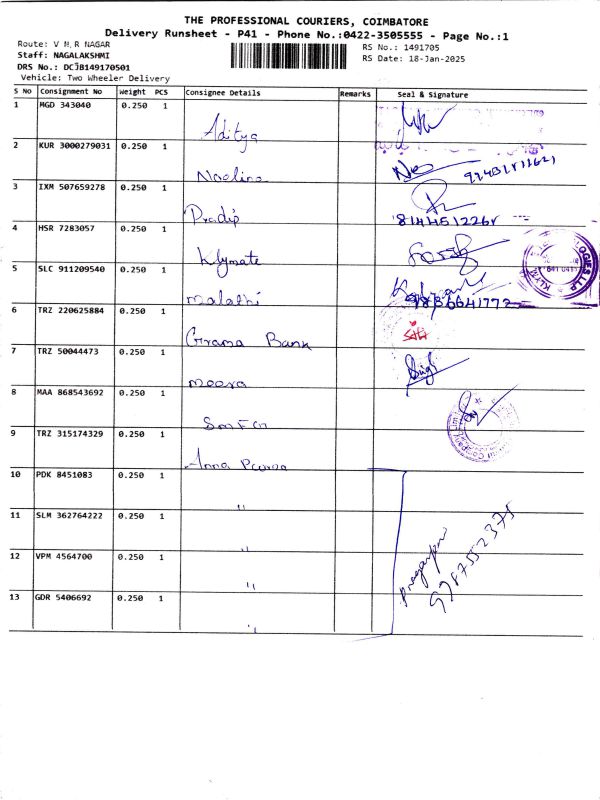 THE PROFESSIONAL COURIERS, COIMBATORE
Delivery Runsheet - P41 - Phone No.:0422-3505555 - Page No.:1
Route: V M.R NAGAR
RS No.: 1491705
Staff: NAGALAKSHMI
RS Date: 18-Jan-2025
DRS No.: DCJB149170501
Vehicle: Two Wheeler Delivery
S No Consignment No Weight PCS Consignee Details Remarks Seal & Signature
1 MGD 343040 0.250 1 Aditya
2 KUR 3000279031 0.250 1 Naolina
3 IXM 507659278 0.250 1 Pradip 8144512268
4 HSR 7283057 0.250 1 Klymate
5 SLC 911209540 0.250 1 Malathi 9886641772
6 TRZ 220625884 0.250 1 Grama Bank
7 TRZ 50044473 0.250 1 Meera
8 MAA 868543692 0.250 1
9 TRZ 315174329 0.250 1 Anna
10 PDK 8451083 0.250 1 "
11 SLM 362764222 0.250 1 "
12 VPM 4564700 0.250 1 "
13 GDR 5406692 0.250 1 "